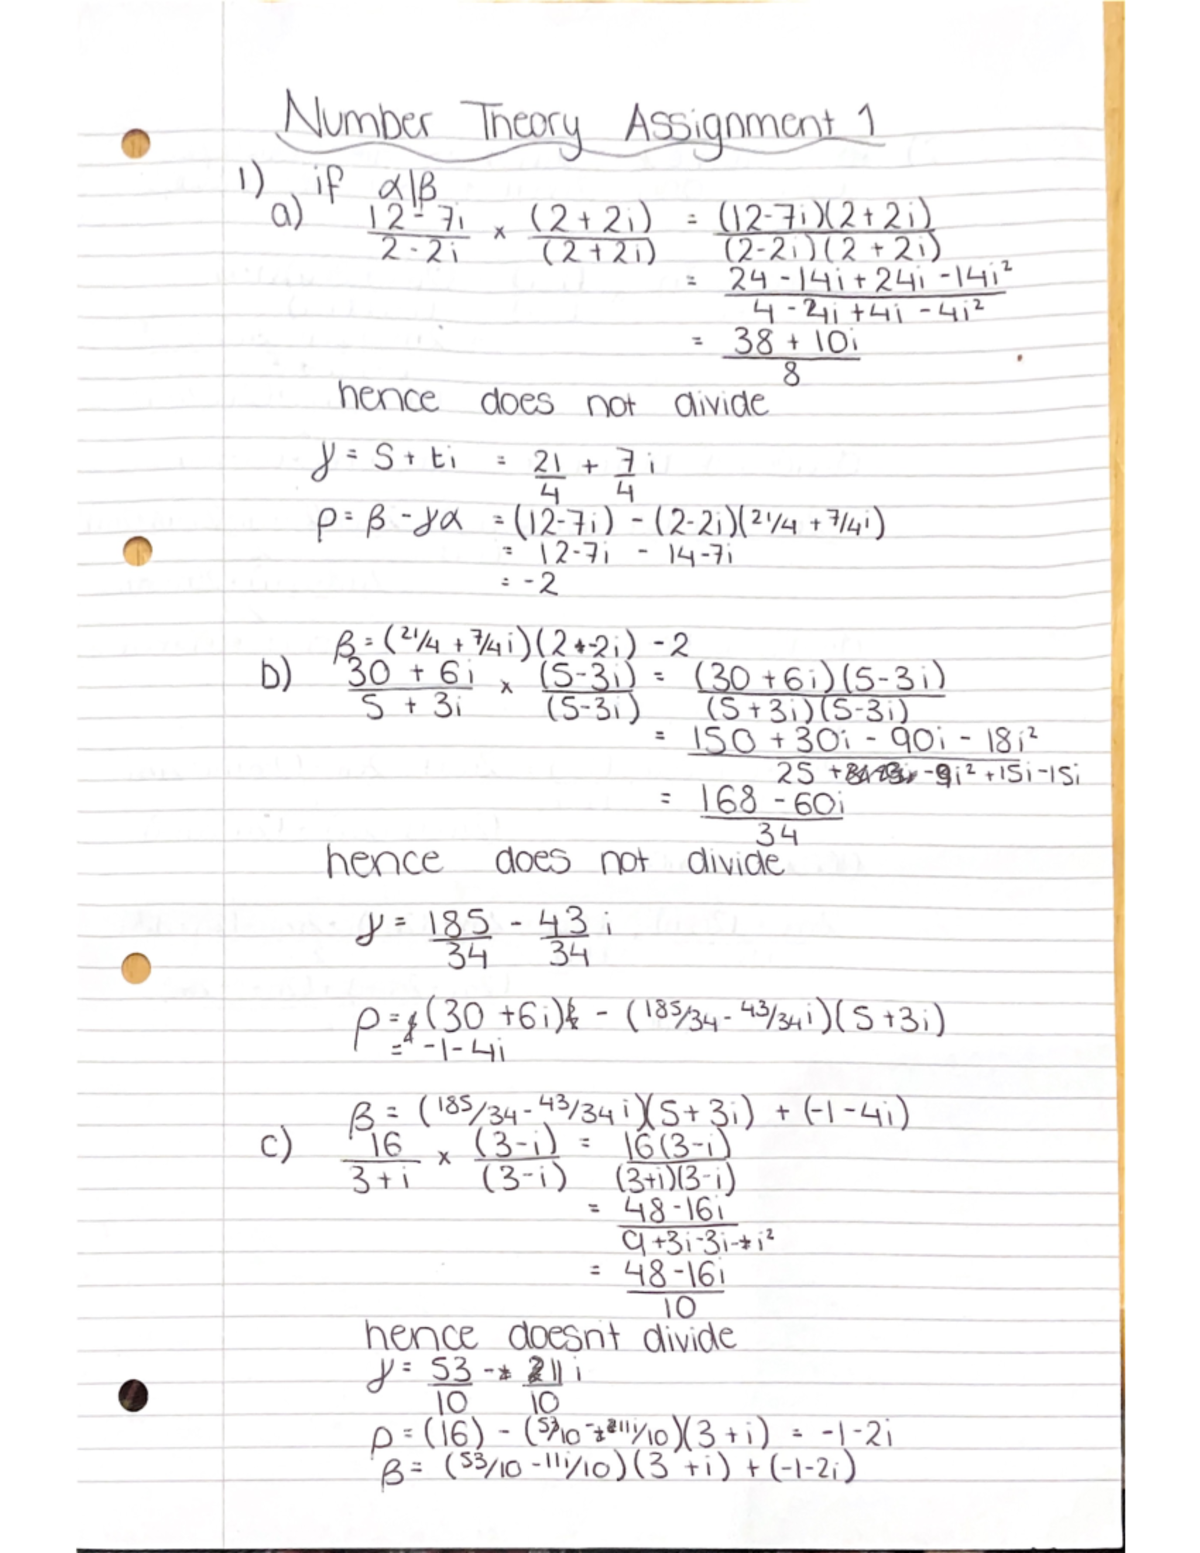 Number Theory Assignment 1
1) if α|β
a) 12 - 7i / 2 - 2i × (2 + 2i) / (2 + 2i) = (12-7i)(2+2i) / (2-2i)(2+2i)
= 24 - 14i + 24i - 14i² / 4 - 4i + 4i - 4i²
= 38 + 10i / 8
hence does not divide
γ = s + ti = 21/4 + 7/4 i
ρ = β - γα = (12-7i) - (2-2i)(21/4 + 7/4i)
= 12-7i - 14-7i
= -2
β = (21/4 + 7/4 i)(2-2i) - 2
b) 30 + 6i / 5 + 3i × (5-3i) / (5-3i) = (30+6i)(5-3i) / (5+3i)(5-3i)
= 150 + 30i - 90i - 18i² / 25 - 9i² + 15i - 15i
= 168 - 60i / 34
hence does not divide
γ = 185/34 - 43/34 i
ρ = (30+6i) - (185/34 - 43/34i)(5+3i)
= -1-4i
β = (185/34 - 43/34 i)(5+3i) + (-1-4i)
c) 16 / 3+i × (3-i) / (3-i) = 16(3-i) / (3+i)(3-i)
= 48-16i / 9+3i-3i-i²
= 48-16i / 10
hence doesnt divide
γ = 53/10 - 11/10 i
ρ = (16) - (53/10 - 11i/10)(3+i) = -1-2i
β = (53/10 - 11i/10)(3+i) + (-1-2i)